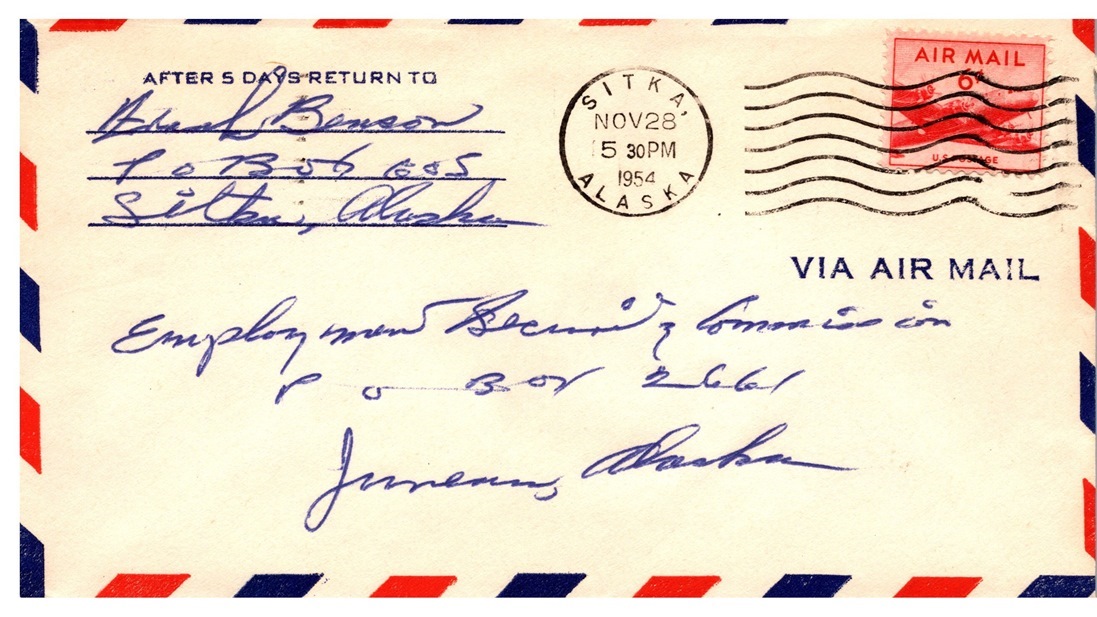 AFTER 5 DAYS RETURN TO
Benson
P O Box 605
Sitka, Alaska
SITKA,
NOV 28
5 30PM
1954
ALASKA
AIR MAIL
6¢
U.S. POSTAGE
VIA AIR MAIL
Employment Security Commission
P O Box 2661
Juneau, Alaska